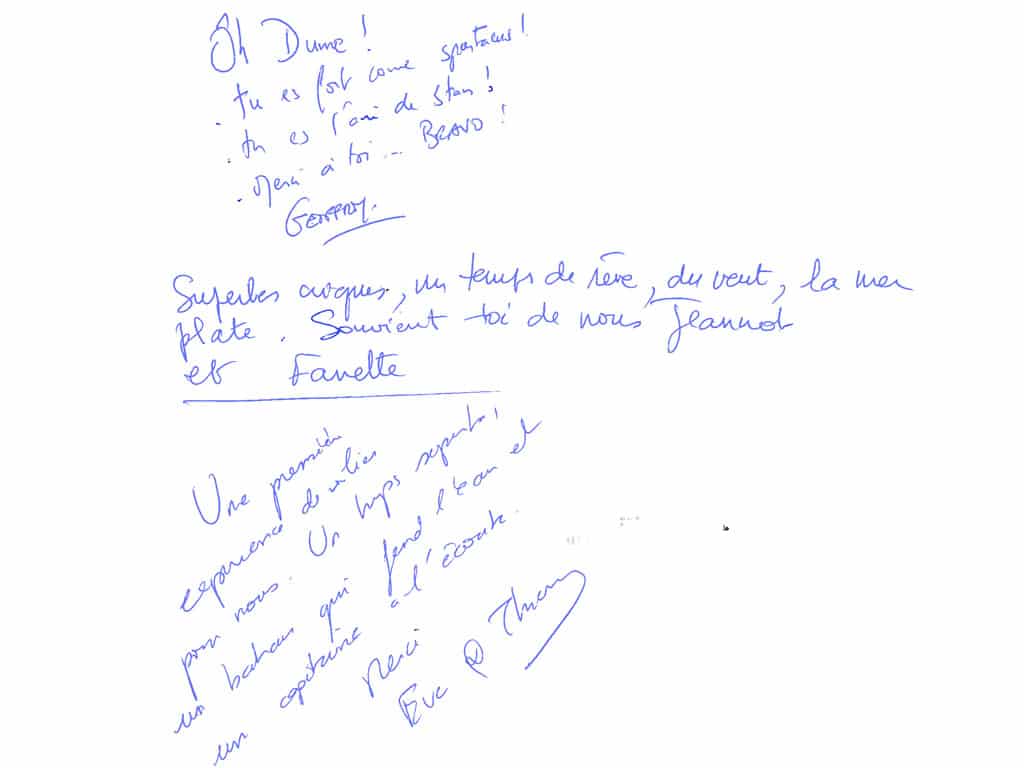 Ôh Dume !
. tu es fort come spartacus !
. tu es l'ami de Stan !
. Merci à toi ... BRAVO !
GEOFFROY.
Superbes criques, un temps de rêve, du vent, la mer
plate. Souvient toi de nous Jeannot
et Fanette
Une première
expérience de voilier
pour nous. Un temps superbe,
un bateau qui fend l'eau et
un capitaine à l'écoute.
Merci
Eve & Thierry